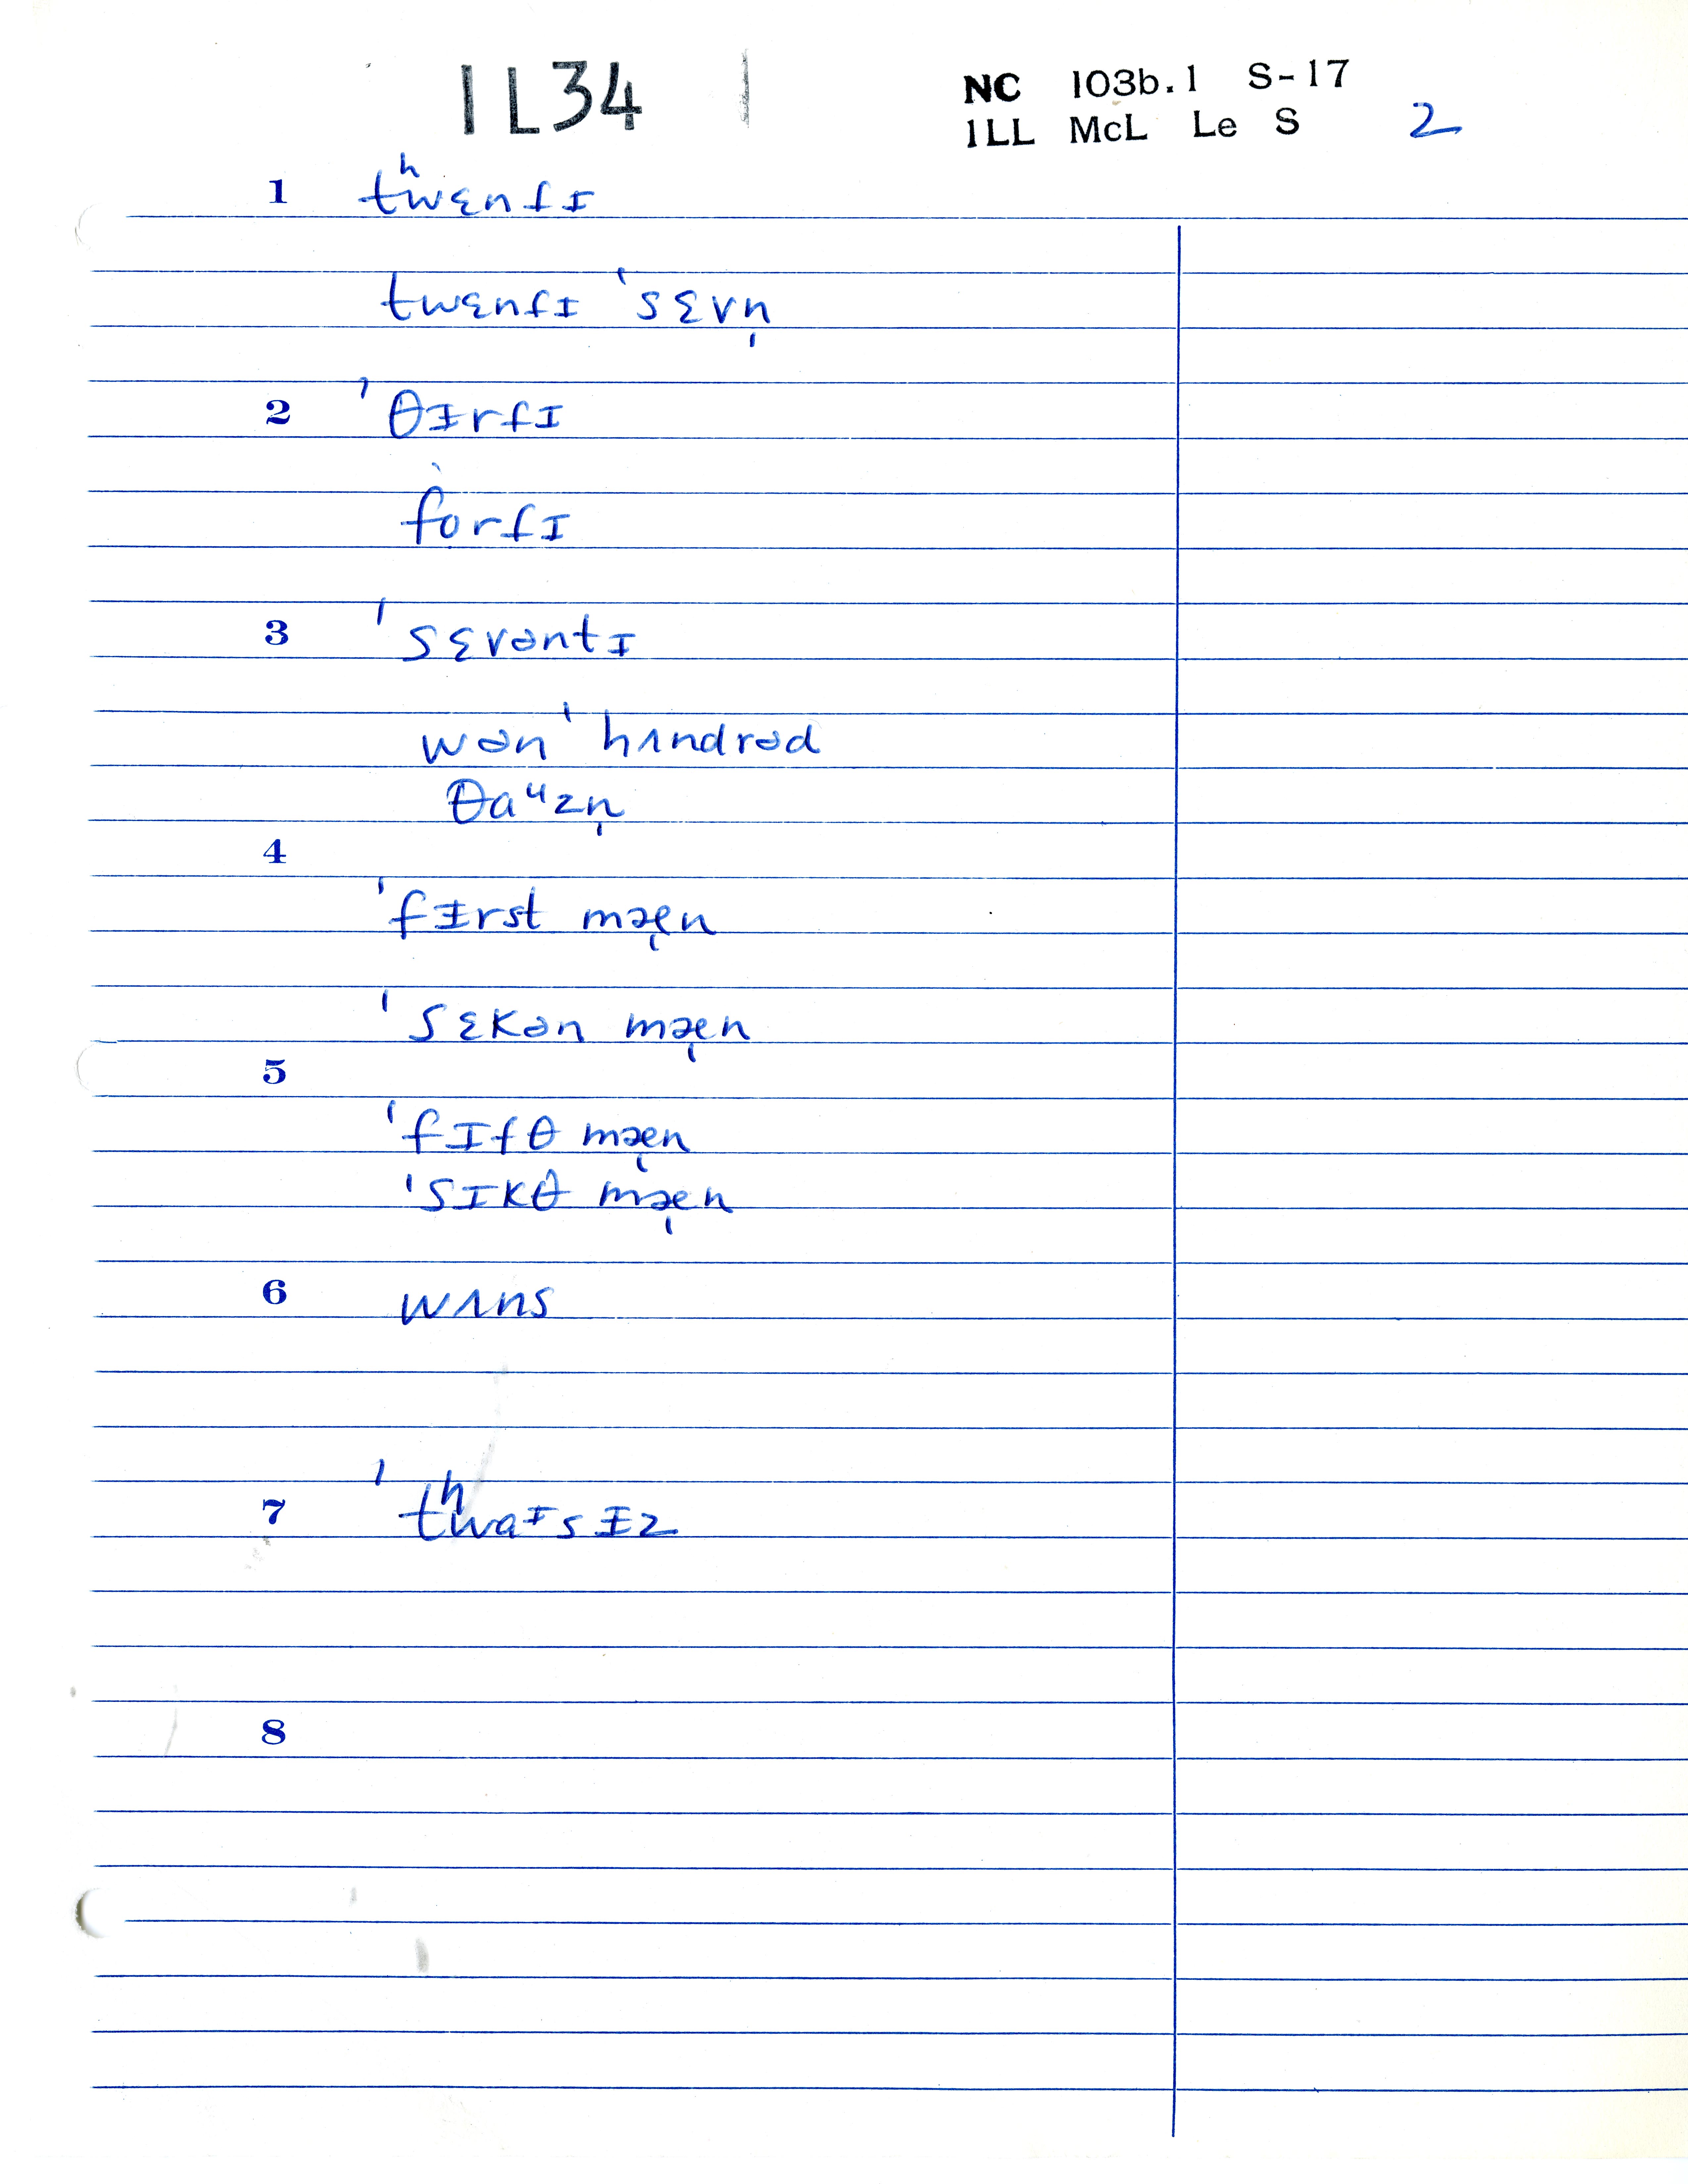 IL34 |
NC 103b.1 S-17
ILL McL Le S 2
1 tʰwɛnɾɪ
twɛnɾɪ ˈsɛvn̩
2 ˈθɪ̵rɾɪ
ˈforɾɪ
3 ˈsɛvəntɪ
wən ˈhʌndrəd
θaᶸzn̩
4
ˈfɪ̵rst mæ̩n
ˈsɛkən mæ̩n
5
ˈfɪfθ mæ̩n
ˈsɪkθ mæ̩n
6 wʌns
7 ˈtʰwaᶦsɪ̵z
8